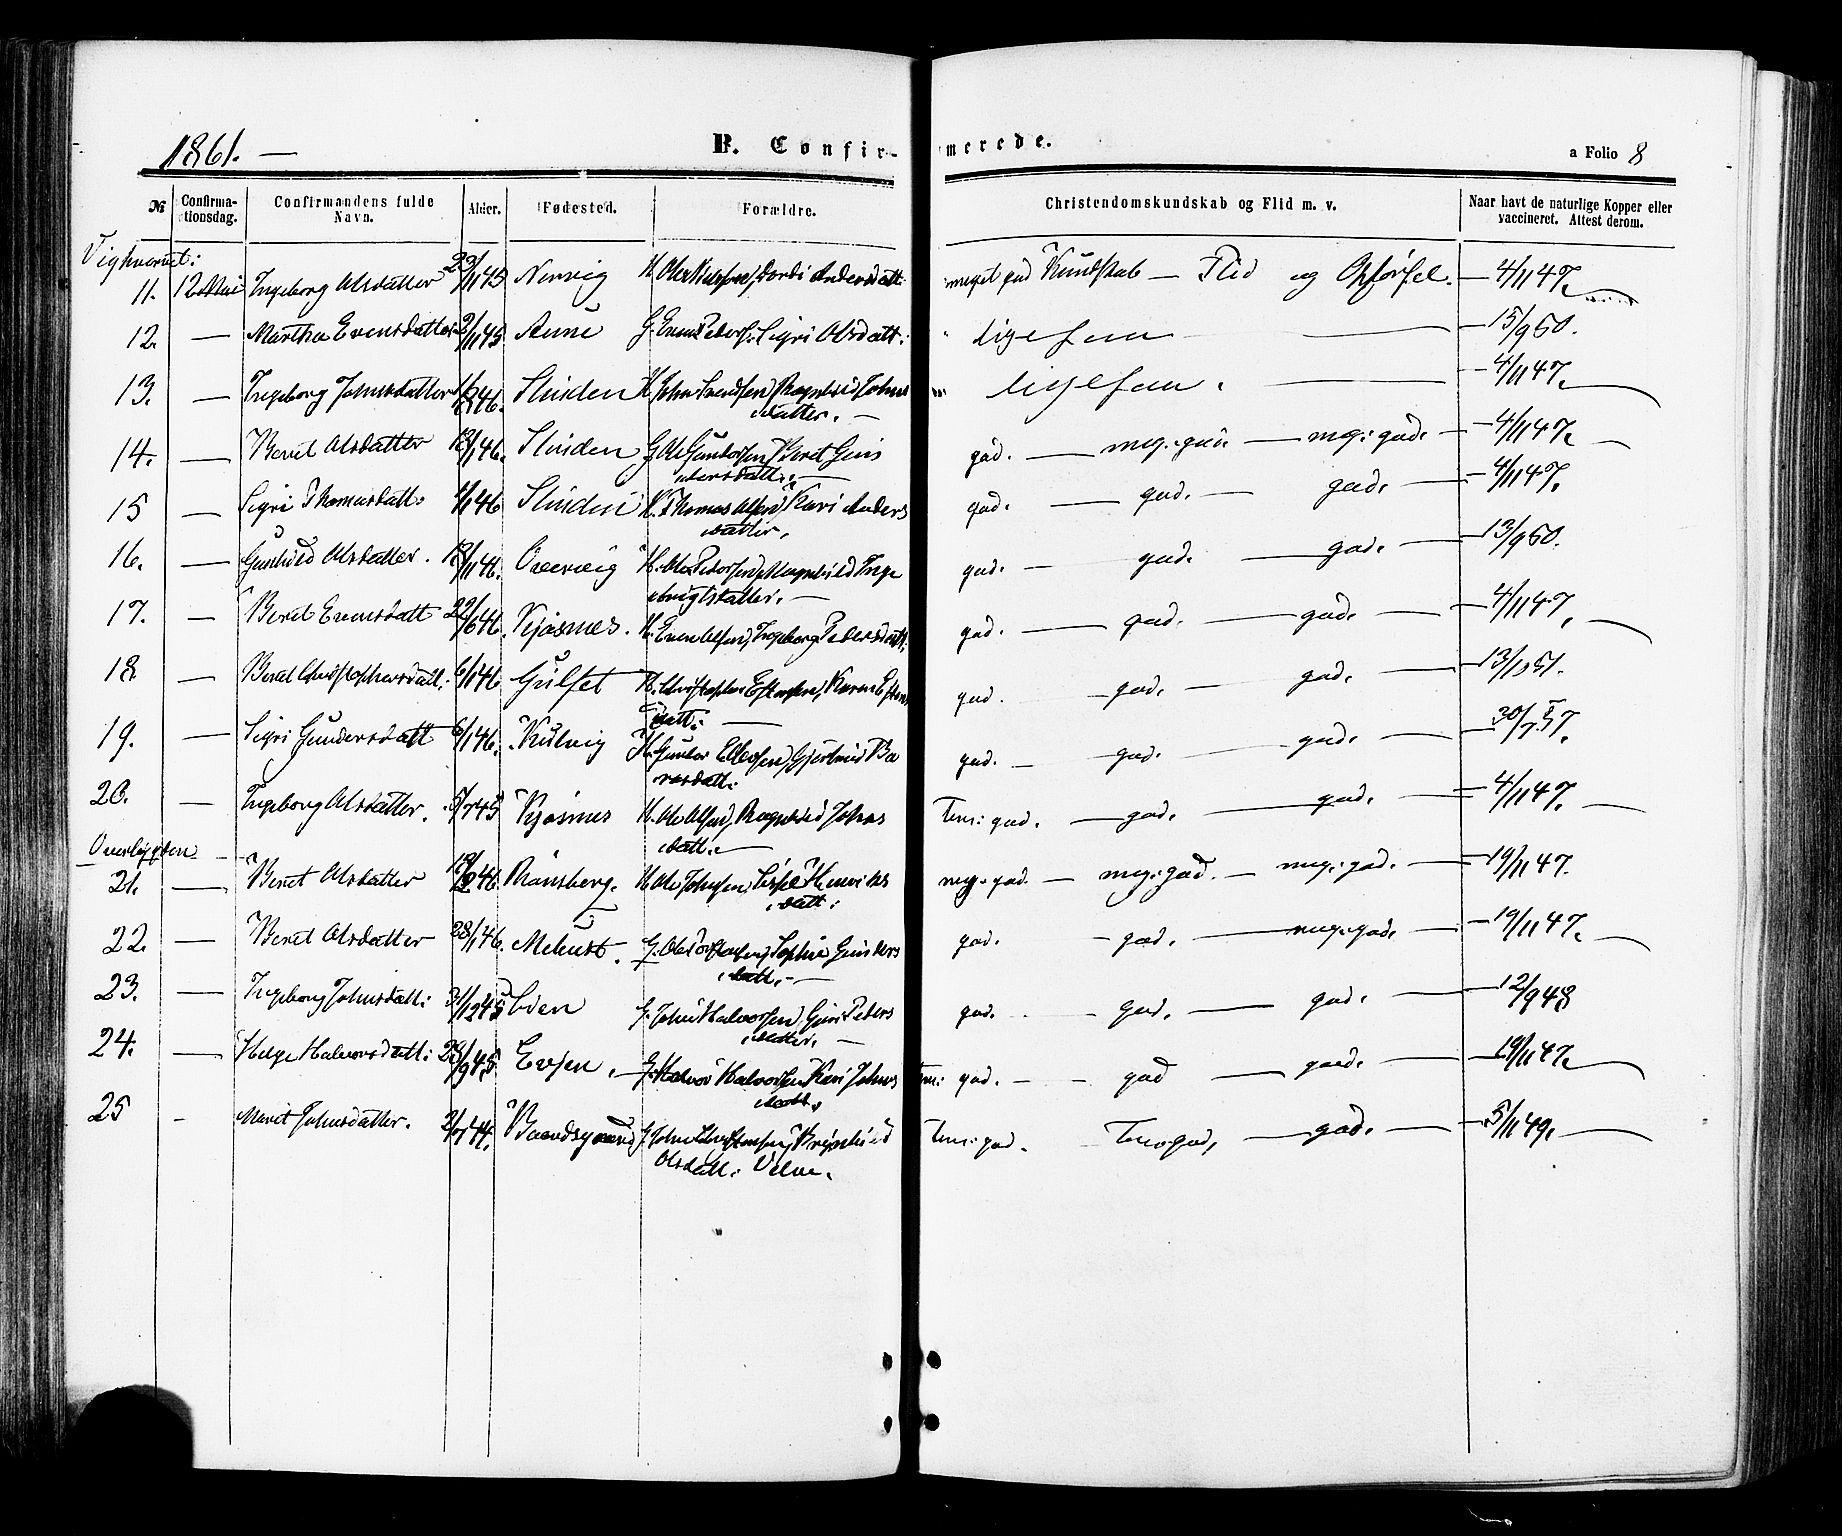 1861. —
B. Confir-
merede.
a Folio 8
№
Confirma-
tionsdag.
Confirmandens fulde
Navn.
Alder.
Fødested.
Forældre.
Christendomskundskab og Flid m. v.
Naar havt de naturlige Kopper eller
vaccineret. Attest derom.
11. 12 Mai Ingeborg Olsdatter 23/11 45 meget god Kundskab — Flid og Opførsel. — 4/11 47.
12. — Martha Evensdatter 2/11 45 Aune G. Even Pedersf. Sigri Olsdatt: ligesom — 15/9 50.
13. — Ingeborg Johnsdatter 46. Slinden H. John Svendsen, Ragnhild Johns ligesom. — 4/11 47.
datter. —
14. — Beret Olsdatter 18/1 46. Slinden G. Ole Gundersen, Beret Gun god. — meg: god. — meg: god. — 4/11 47.
dersdatt: —
15 — Sigri Thomasdatt: 4/1 46 Slinden H. Thomas Olsen, Kari Anders god. — god. — god. — 4/11 47.
datter.
16. — Gunhild Olsdatter. 46. H. Ole Pedersen, Ragnhild Inge god. — god. — god. — 13/9 50.
brigtsdatter. —
17. — Beret Evensdatt 22/6 46. Kjøsnes. H. Even Olsen, Ingeborg Pedersdatt: god. — god. — god. — 4/11 47.
18. — Beret Christophersdatt: 6/1 46 Gulset H. Christopher Estensen, Karen Estens god. — god. — god. — 13/1 51.
datt: —
19. — Sigri Gundersdatt 6/1 46. Kulvig H. Gunder Ellevsen, Gjertrud Ba god. — god. — god. — 30/7 57.
rosdatt:
20. — Ingeborg Olsdatter. 5/7 45 Kjøsnes H. Ole Olsen, Ragnhild Johns Tem: god. — god. — god. — 4/11 47.
datt: —
21. — Beret Olsdatter 46. Rønsberg. H. Ole Johnsen, Henriks meg. god. — meg: god. — meg: god. — 19/11 47.
datt:
22. — Beret Olsdatter 28/1 46. Mebust. G. Ole Sophie Gunders god. — god. — meg: god. — 19/11 47.
datt. —
23. — Ingeborg Johnsdatt: 31/12 45 G. John Halvorsen, Guri Peders god. — god. — god. — 12/9 48
datter. —
24. — Helge Halvorsdatt: 9 45 Evjen. G. Halvor Halvorsen Kari Johns Tem: god. — god — god. — 19/11 47.
datt.
25 — Marit Johnsdatter. 2/7 44. G. John Brynhild Tem: god. — Tem: god, — god. — 5/11 49.
Olsdatt: